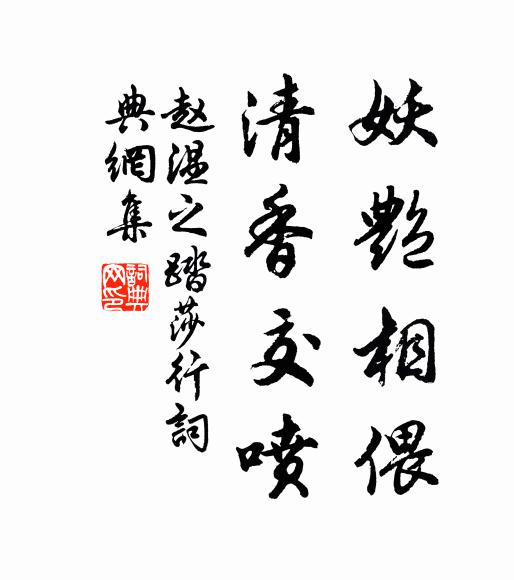 妖艷相偎
清香交噴
赵温之踏莎行詞
典網集
詞典网印